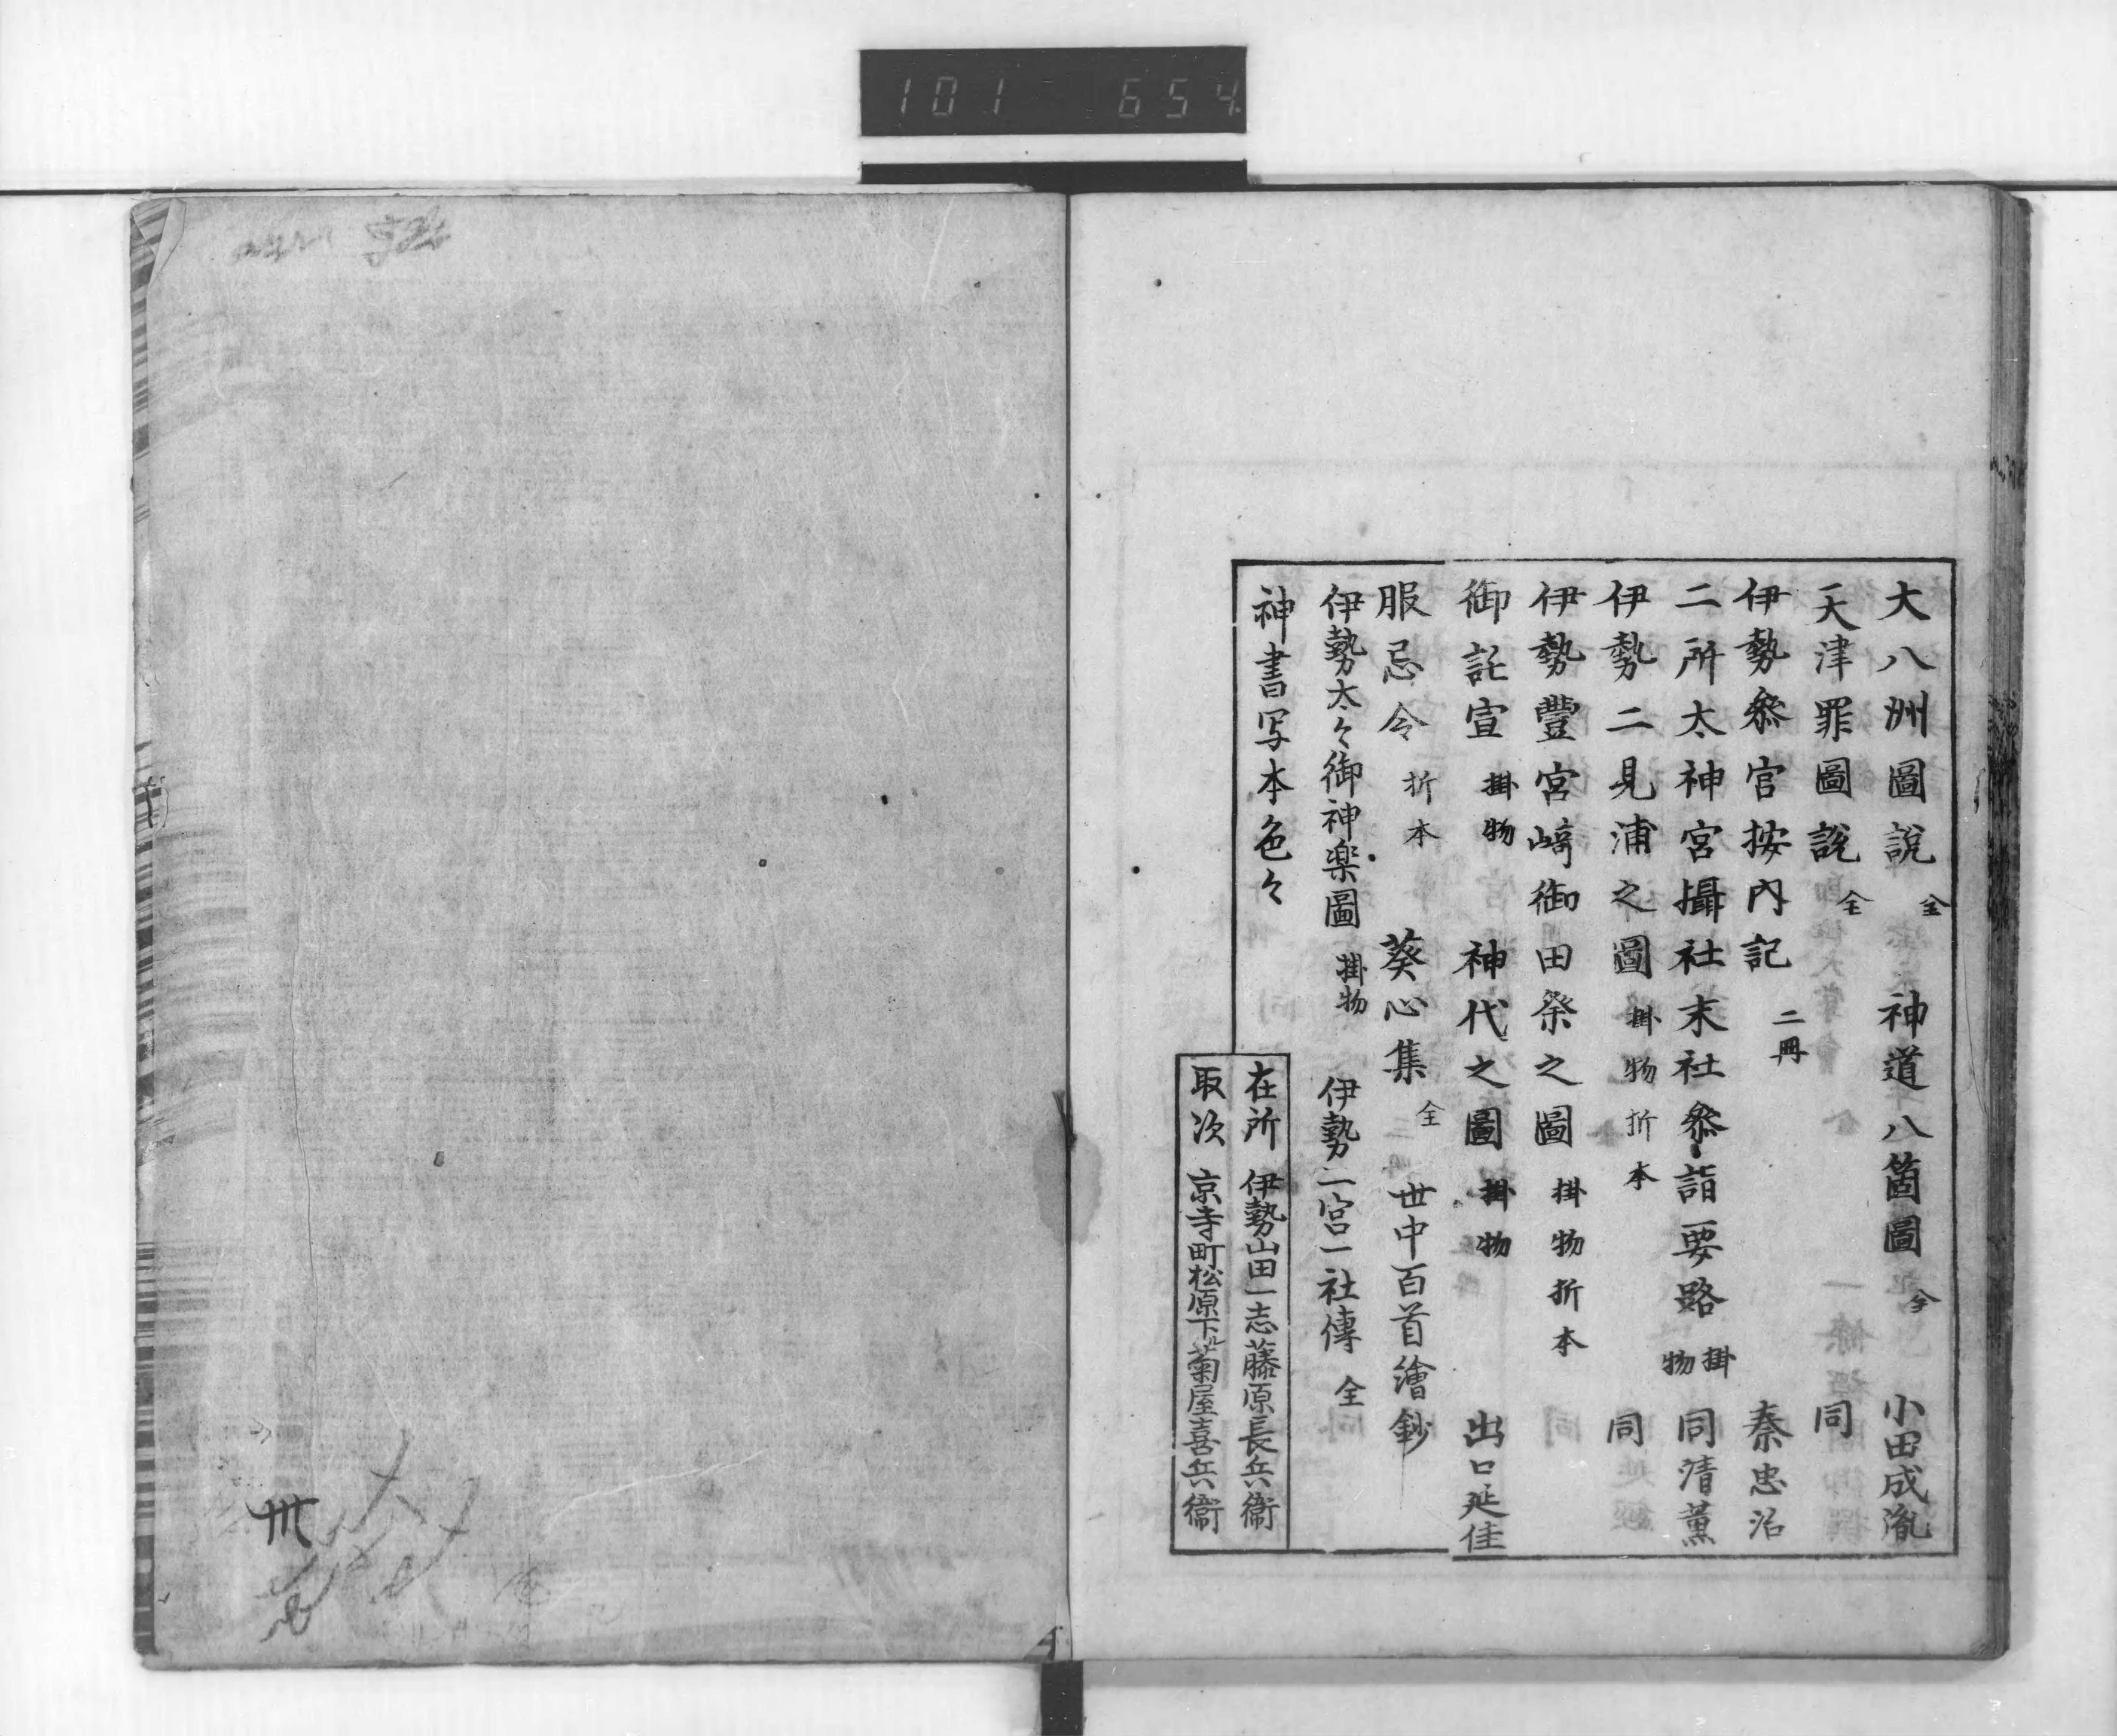 101 654
大八洲圖說 全 神道八箇圖 全 小田成胤
天津罪圖說 全 同
伊勢叅官按內記 二冊 秦忠沼
二所太神宮攝社末社叅詣要路 掛物 同清薫
伊勢二見浦之圖 掛物折本 同
伊勢豐宮﨑御田祭之圖 掛物折本
御託宣 掛物 神代之圖 掛物 出口延佳
服忌令 折本 葵心集 全 世中百首繪鈔
伊勢太々御神楽圖 掛物 伊勢二宮一社傳 全
神書写本色々
在所 伊勢山田一志藤原長兵衞
取次 京寺町松原下ル菊屋喜兵衞